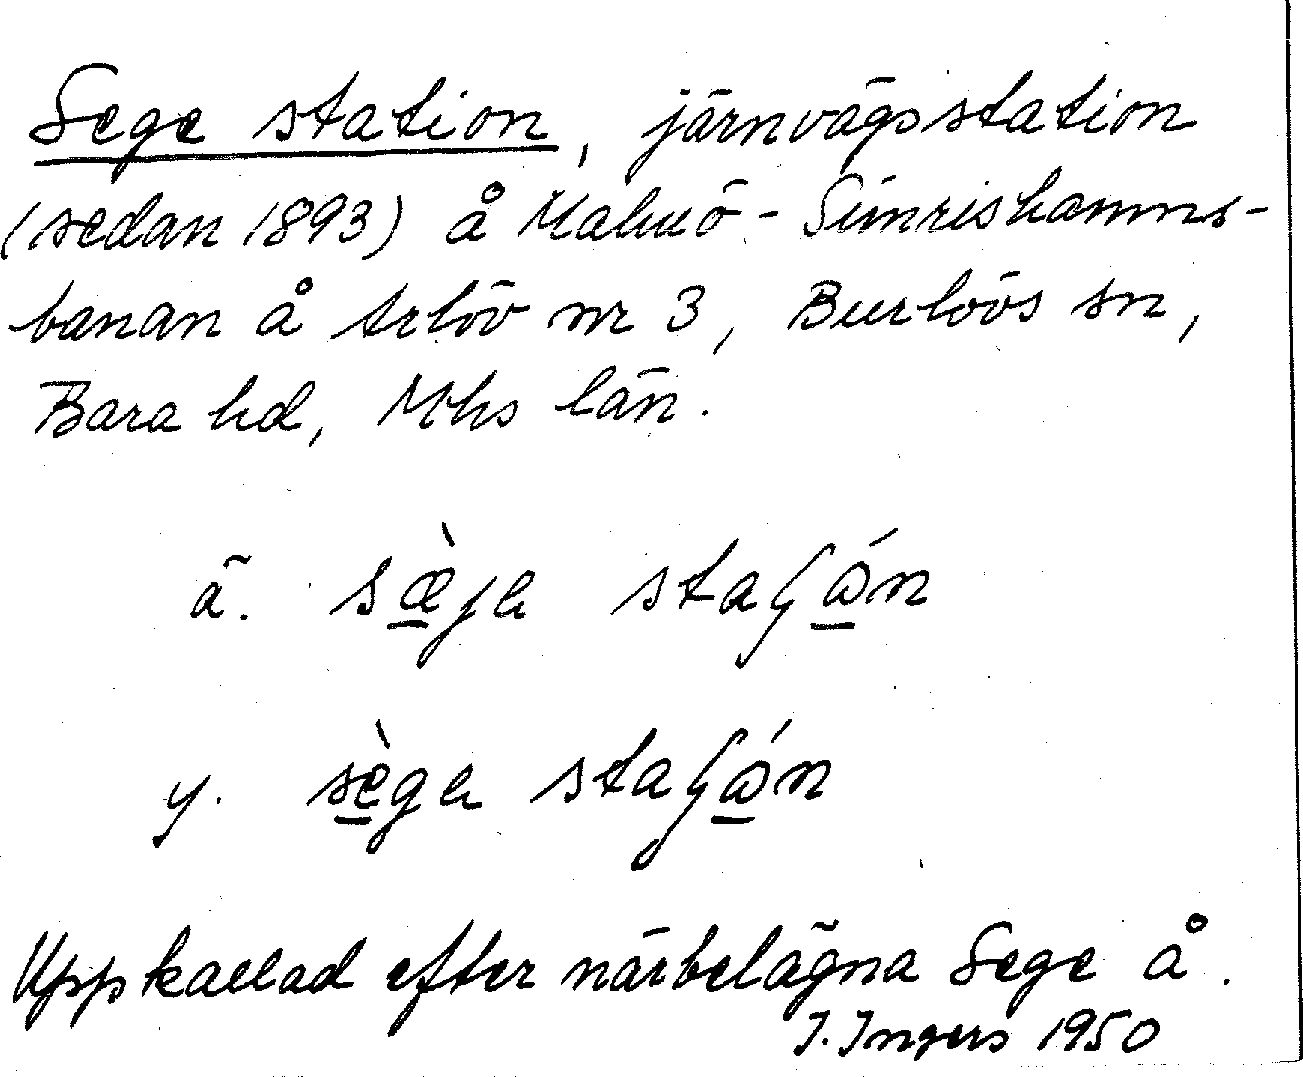 Sege station, järnvägsstation
(sedan 1893) å Malmö - Simrishamns-
banan å Arlöv nr 3, Burlövs sn,
Bara hd, Mhs län.
ä. sæ̠̀jə staʃó̠n
y. sè̠gə staʃó̠n
Uppkallad efter närbelägna Sege å.
I. Ingers 1950